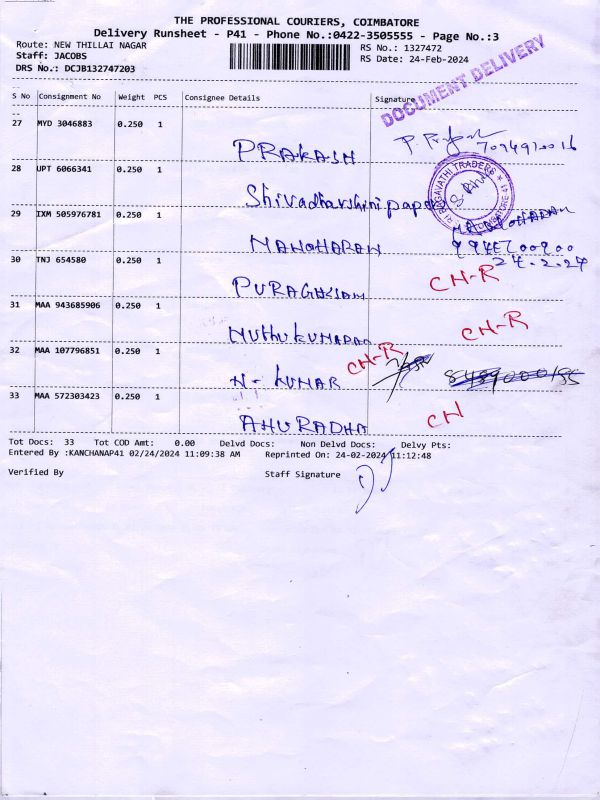 THE PROFESSIONAL COURIERS, COIMBATORE
Delivery Runsheet - P41 - Phone No.:0422-3505555 - Page No.:3
Route: NEW THILLAI NAGAR
RS No.: 1327472
Staff: JACOBS
RS Date: 24-Feb-2024
DRS No.: DCJB132747203
DOCUMENT DELIVERY
S No Consignment No Weight PCS Consignee Details Signature
27 MYD 3046883 0.250 1
PRAKASH
28 UPT 6066341 0.250 1
BAGAVATHI TRADERS
COIMBATORE
Shivadharshini papers
29 IXM 505976781 0.250 1
MANOHARAN
MANOHARAN
24.2.24
30 TNJ 654580 0.250 1
CH-R
31 MAA 943685906 0.250 1
CH-R
32 MAA 107796851 0.250 1
N- KUMAR
CH-R
33 MAA 572303423 0.250 1
ANURADHA
CH
Tot Docs: 33 Tot COD Amt: 0.00 Delvd Docs: Non Delvd Docs: Delvy Pts:
Entered By :KANCHANAP41 02/24/2024 11:09:38 AM Reprinted On: 24-02-2024 11:12:48
Verified By Staff Signature